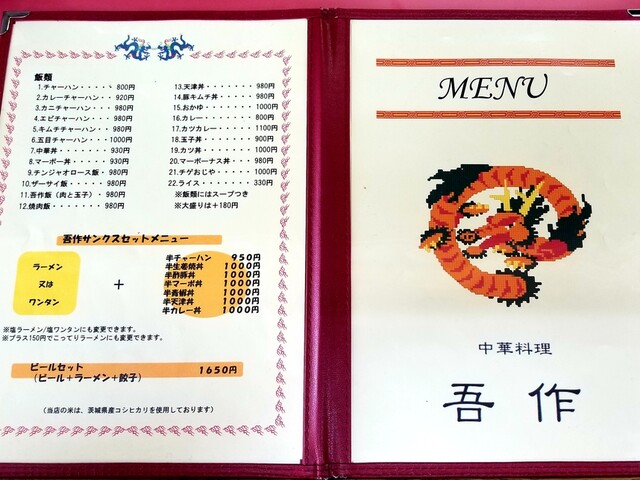 飯類
1.チャーハン・・・・・ 800円
2.カレーチャーハン・・ 920円
3.カニチャーハン・・・ 980円
4.エビチャーハン・・・ 980円
5.キムチチャーハン・・ 980円
6.五目チャーハン・・・1000円
7.中華丼・・・・・・・ 930円
8.マーボー丼・・・・・ 930円
9.チンジャオロース飯・ 980円
10.ザーサイ飯・・・・・ 980円
11.吾作飯（肉と玉子）・ 980円
12.焼肉飯・・・・・・・ 980円
13.天津丼・・・・・・・ 980円
14.豚キムチ丼・・・・・ 980円
15.おかゆ・・・・・・・1000円
16.カレー・・・・・・・ 800円
17.カツカレー・・・・・1100円
18.玉子丼・・・・・・・ 900円
19.カツ丼・・・・・・・1000円
20.マーボーナス丼・・・ 980円
21.チゲおじや・・・・・1000円
22.ライス・・・・・・・ 330円
※飯類にはスープつき
※大盛りは＋180円
吾作サンクスセットメニュー
ラーメン
又は
ワンタン
＋
半チャーハン 950円
半生姜焼丼 1000円
半酢豚丼 1000円
半マーボ丼 1000円
半青椒丼 1000円
半天津丼 1000円
半カレー丼 1000円
※塩ラーメン/塩ワンタンにも変更できます。
※プラス150円でこってりラーメンにも変更できます。
ビールセット 1650円
（ビール＋ラーメン＋餃子）
（当店の米は、茨城県産コシヒカリを使用しております）
MENU
中華料理
吾作